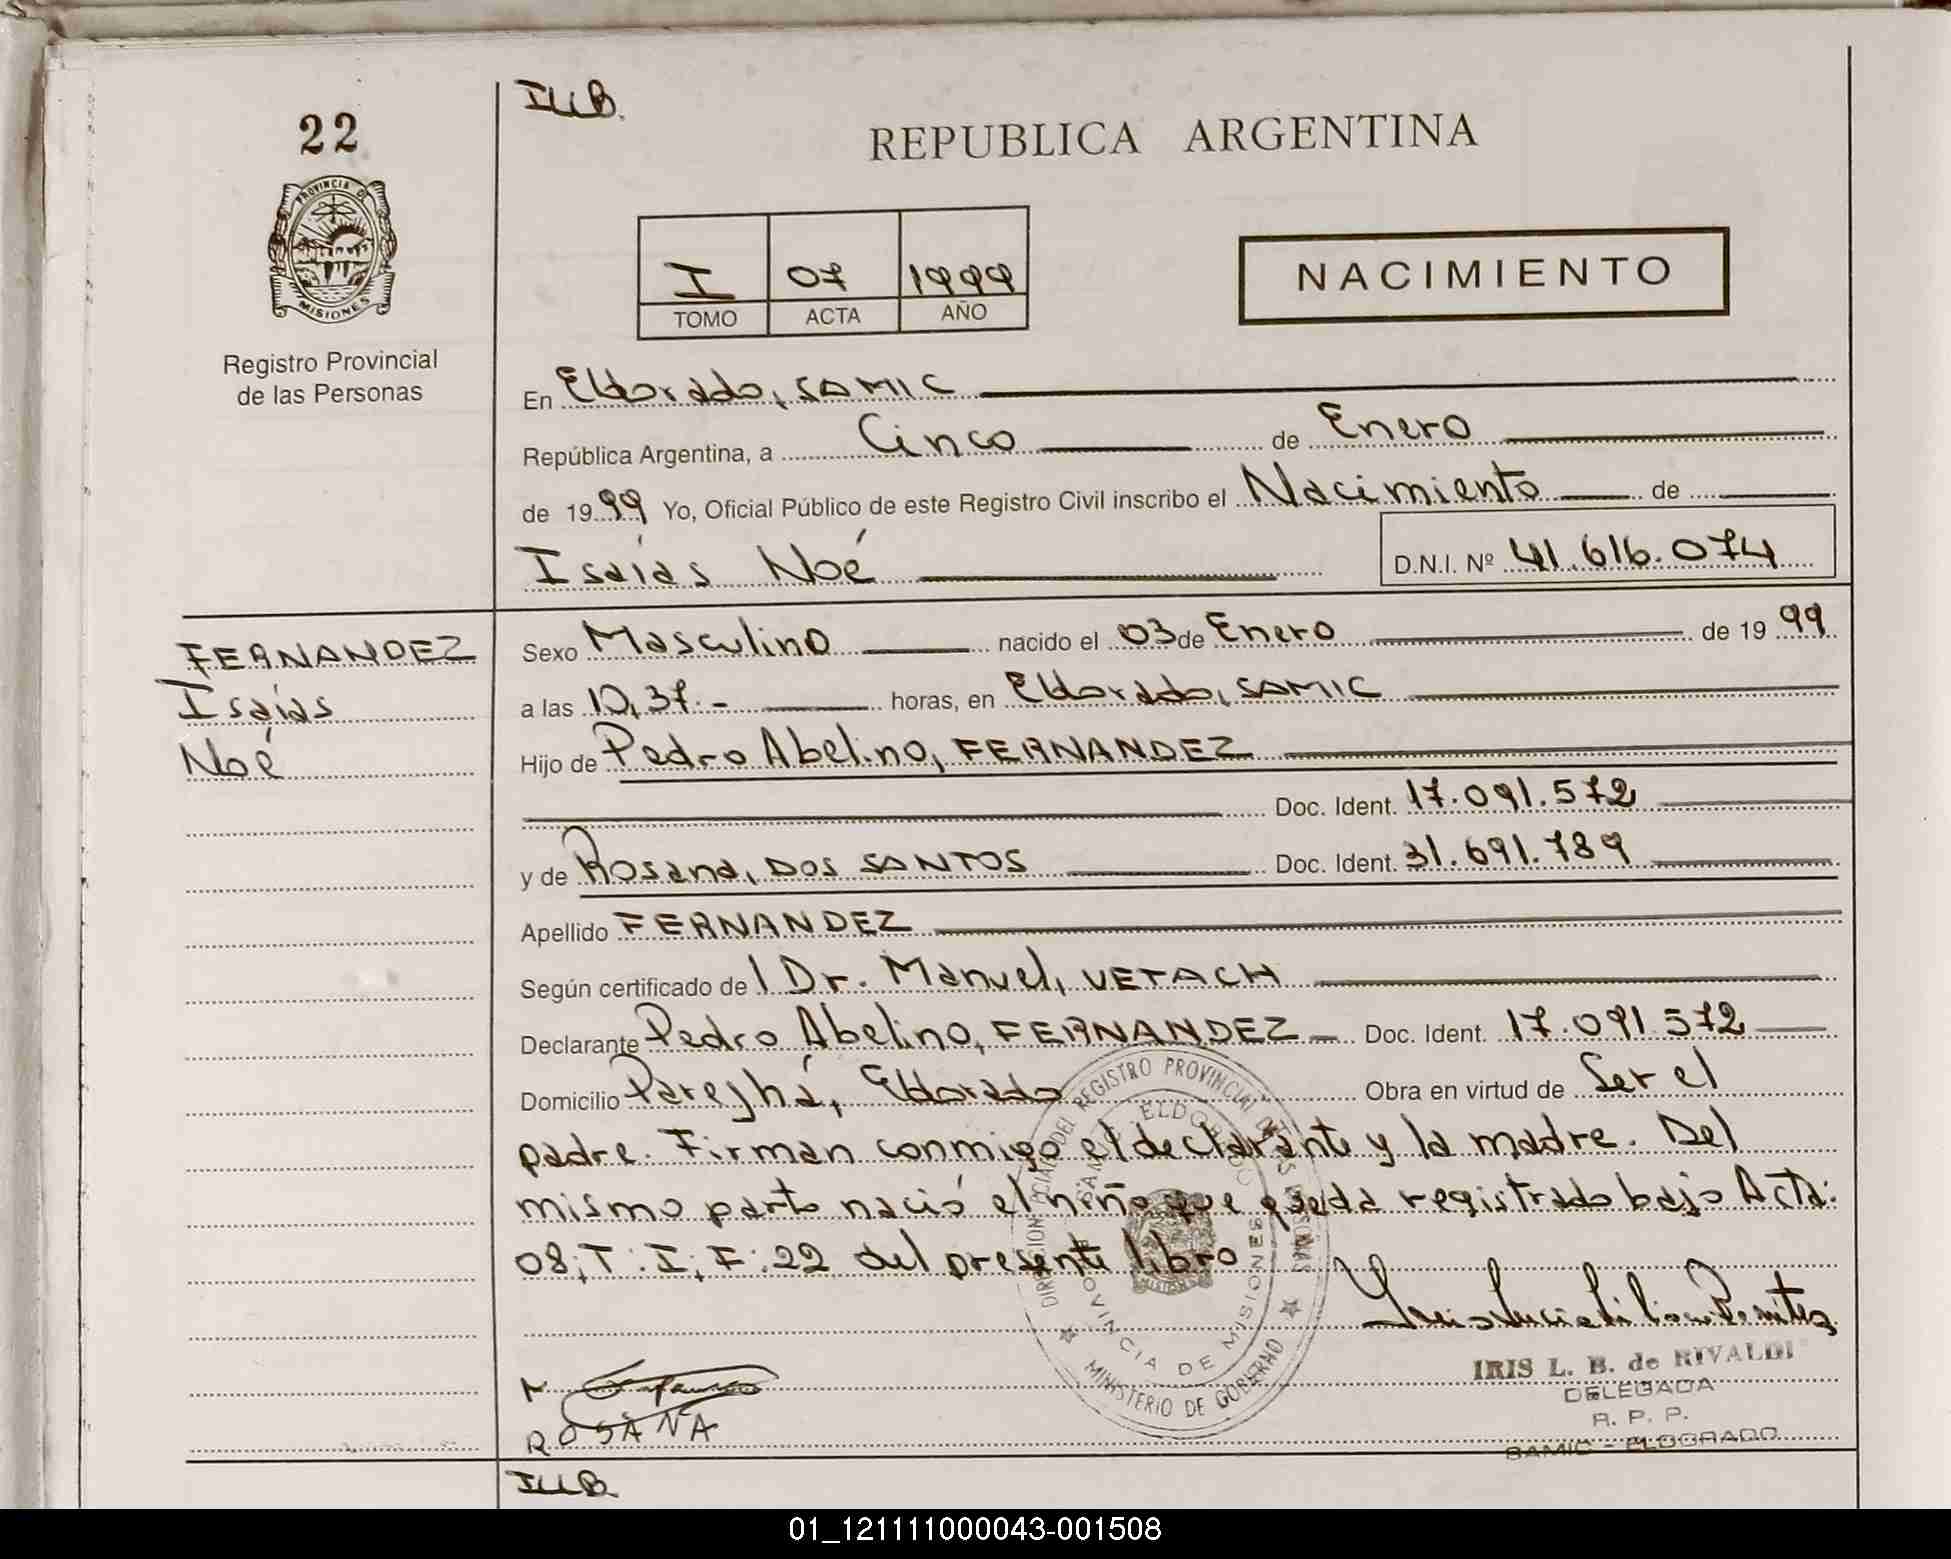 22
PROVINCIA DE
MISIONES
Registro Provincial
de las Personas
REPUBLICA ARGENTINA
I 07 1999
TOMO ACTA AÑO
NACIMIENTO
En Eldorado, SAMIC
República Argentina, a Cinco de Enero
de 1999 Yo, Oficial Público de este Registro Civil inscribo el Nacimiento de
Isaías Noé D.N.I. Nº 41.616.074
FERNANDEZ
Isaías
Noé
Sexo Masculino nacido el 03 de Enero de 1999
a las 10,37.- horas, en Eldorado, SAMIC
Hijo de Pedro Abelino, FERNANDEZ
Doc. Ident. 17.091.572
y de Rosana, DOS SANTOS Doc. Ident. 31.691.789
Apellido FERNANDEZ
Según certificado de l Dr. Manuel, VETACH
Declarante Pedro Abelino, FERNANDEZ Doc. Ident. 17.091.572
Domicilio Parejhá, Eldorado Obra en virtud de Ser el
padre. Firman conmigo el declarante y la madre. Del
mismo parto nació el niño que queda registrado bajo Acta:
08; T: I; F: 22 del presente libro
DIRECCION PROVINCIAL DEL REGISTRO PROVINCIAL DE LAS PERSONAS
SAMIC ELDORADO
PROVINCIA DE MISIONES
MINISTERIO DE GOBIERNO
IRIS L. B. de RIVALDI
DELEGADA
R. P. P.
SAMIC - ELDORADO
ROSANA
01_121111000043-001508